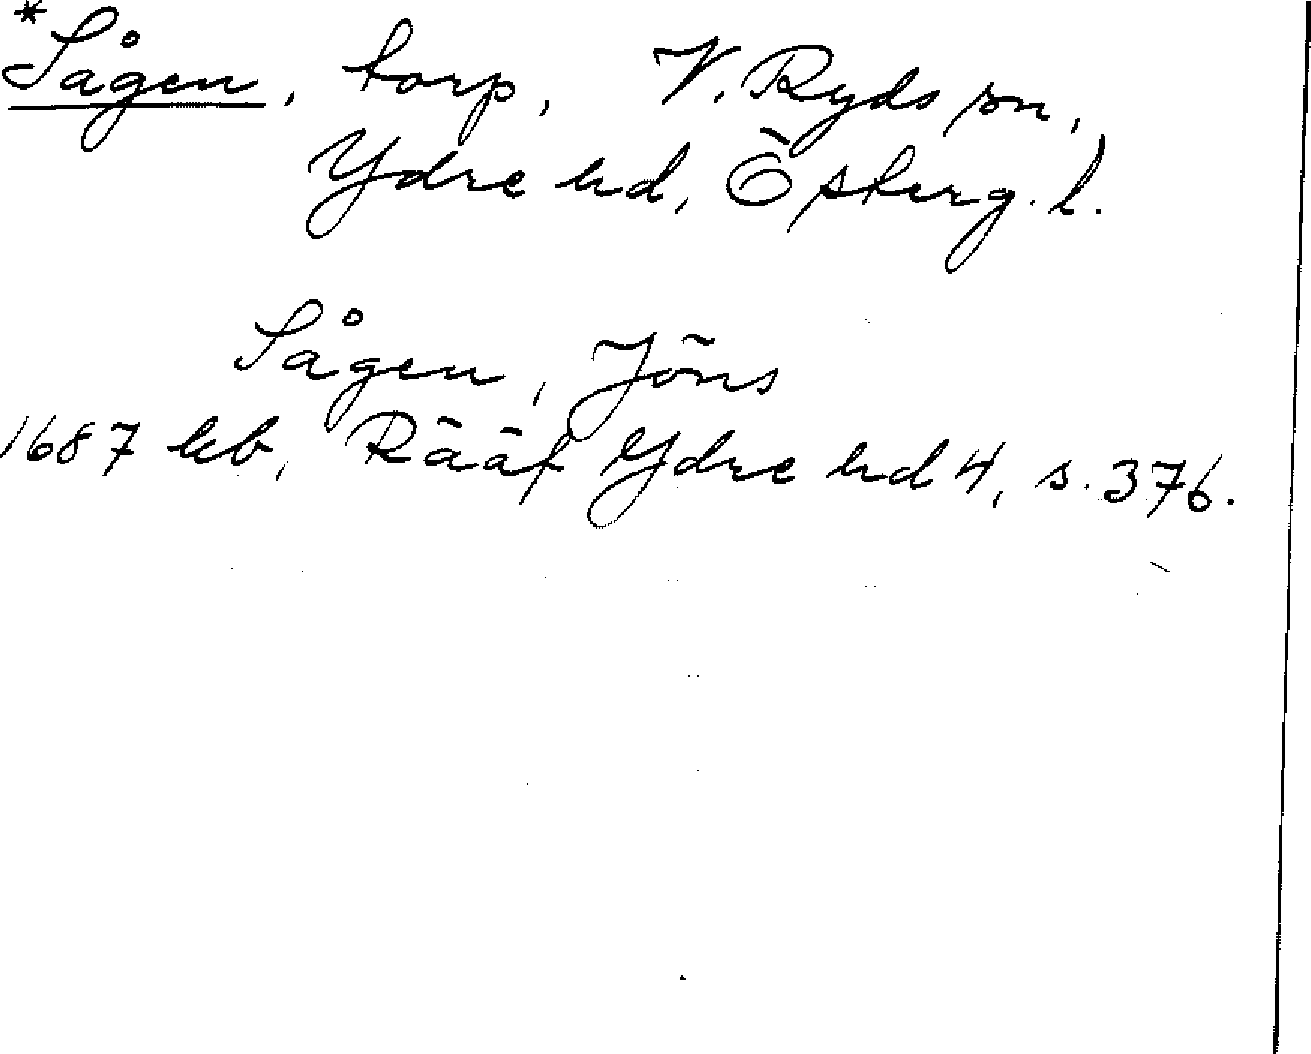 *Sågen, torp, V. Ryds sn,
Ydre hd, Österg. l.
Sågen, Jöns
1687 kb, Rääf Ydre hd 4, s. 376.